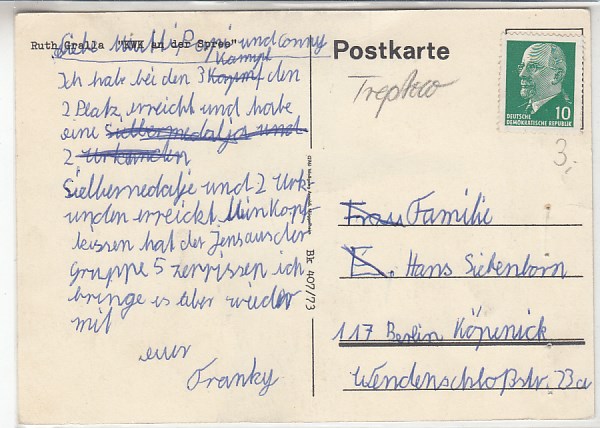 Ruth Gralla "KWK an der Spree"
Liebe Mutti, Papi und Conny
Kampf
Ich habe bei den 3 Kampf den
2 Platz erreicht und habe
eine Silbermedalje und
2 Urkunden
Sielbermedalje und 2 Urk-
unden erreicht Mein Kopf-
kissen hat der Jens aus der
gruppe 5 zerrissen ich
bringe es aber wieder
mit
euer
Franky
Bk 407/73
Postkarte
Treptow
DEUTSCHE
DEMOKRATISCHE REPUBLIK
10
3,-
Frau Familie
E. Hans Siebenborn
117 Berlin Köpenick
Wendenschloßstr. 23a